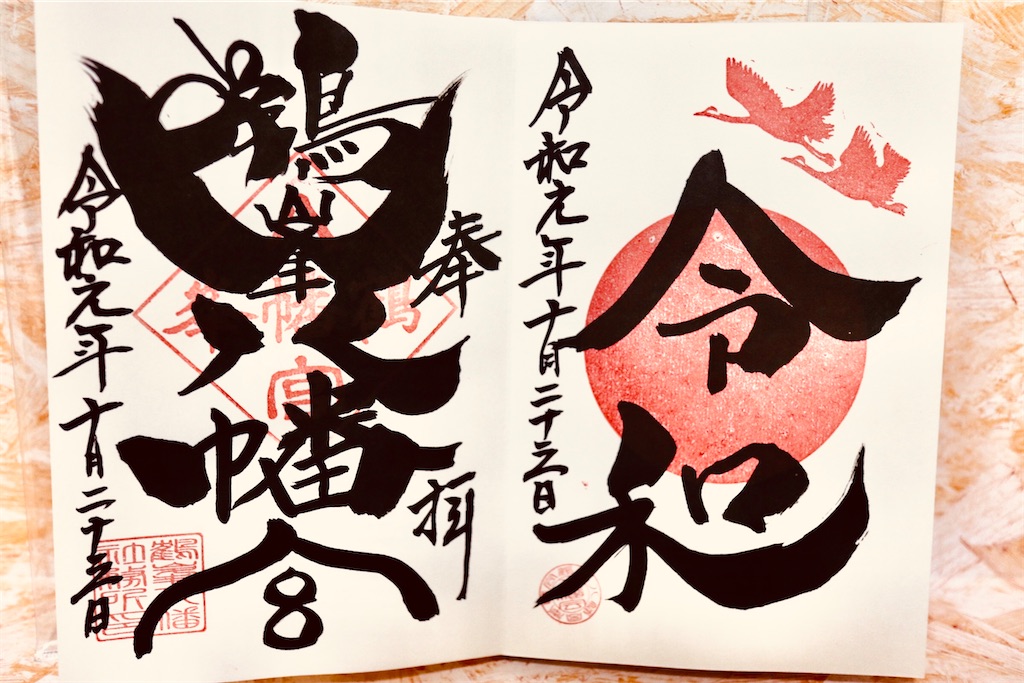 令和
令和元年十月二十三日
奉拝
鶴峯八幡宮
令和元年十月二十三日
鶴峯八幡
社務所印